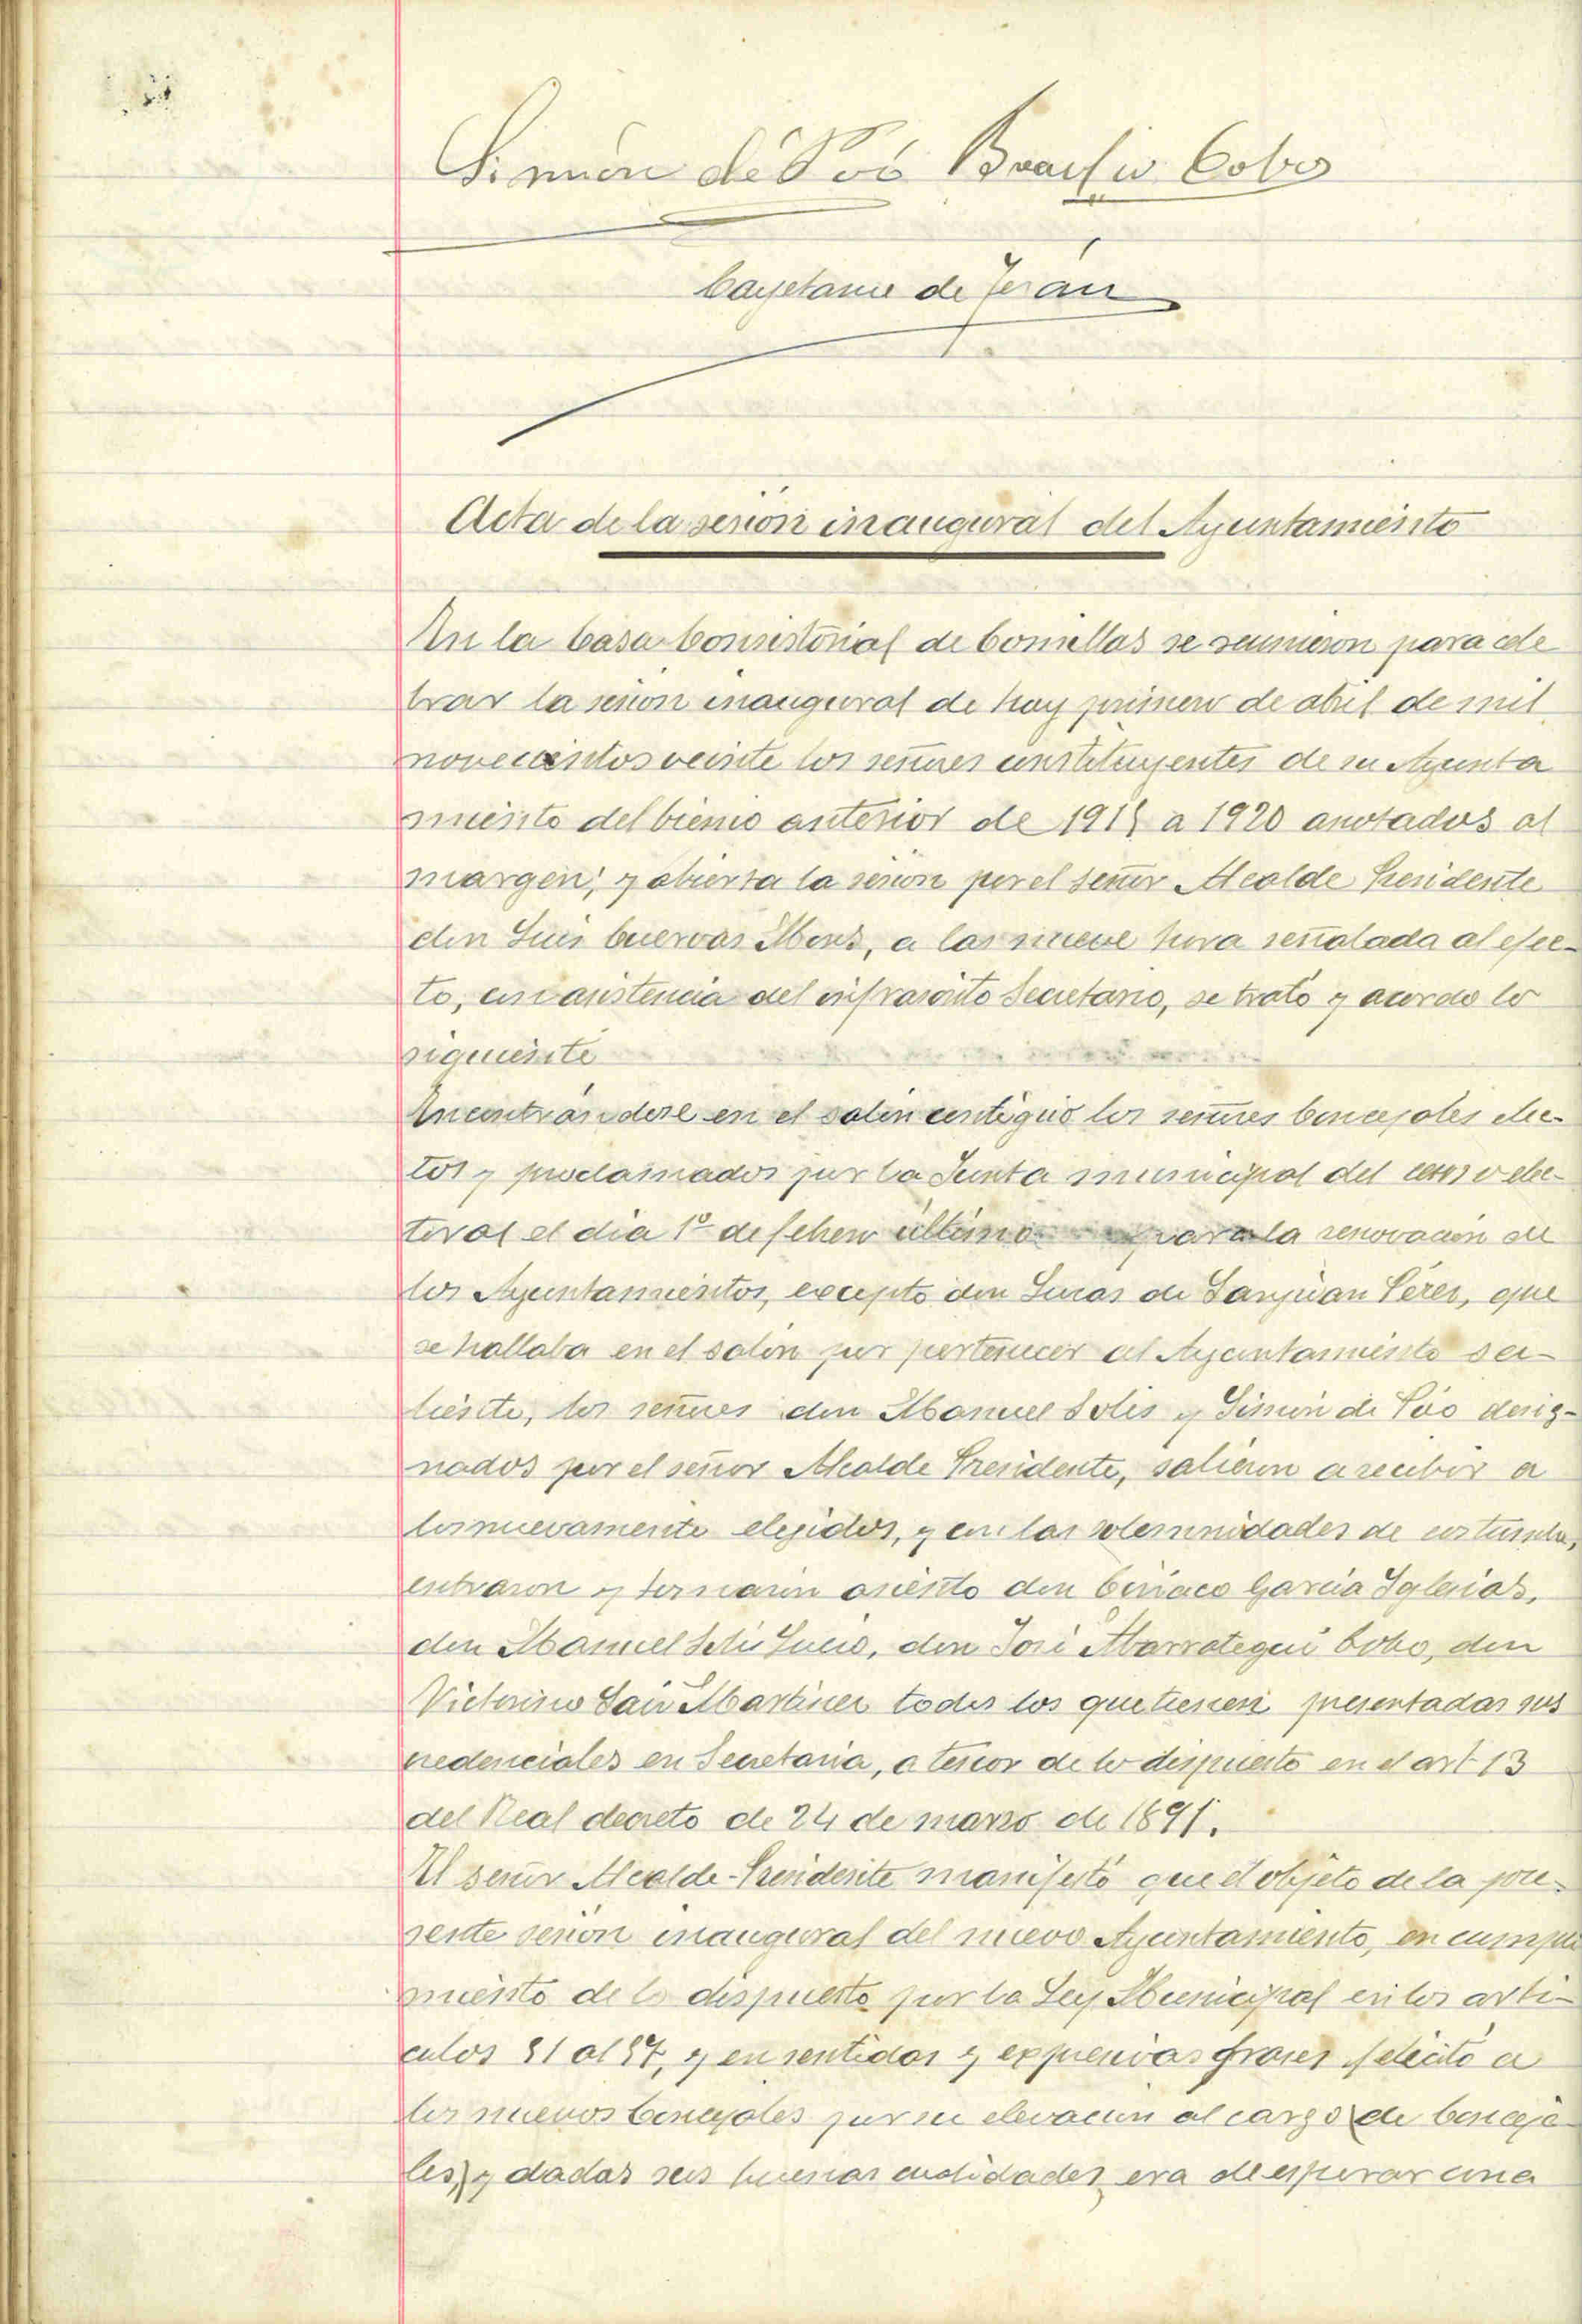 Simón de Póo Braulio Cobo
Cayetano de Terán
Acta de la sesión inaugural del Ayuntamiento
En la Casa Consistorial de Comillas se reunieron para cele
brar la sesión inaugural de hoy primero de abril de mil
novecientos veinte los señores constituyentes de su Ayunta
miento del bienio anterior de 1918 a 1920 anotados al
margen; y abierta la sesion por el señor Alcalde Presidente
don Luis Cuervas Mons, a las nueve hora señalada al efec-
to, con asistencia del infrascrito Secretario, se trató y acordó lo
siguiente
Encontrándose en el salón contiguo los señores Concejales elec-
tos y proclamados por la Junta municipal del censo elec-
toral el dia 1º de febrero último para la renovación de
los Ayuntamientos, excepto don Lucas de Sanjuan Pérez, que
se hallaba en el salón por pertenecer al Ayuntamiento sa-
liente, los señores don Manuel Solis y Simón de Póo desig-
nados por el señor Alcalde Presidente, salieron a recibir a
los nuevamente elegidos, y con las solemnidades de costumbre,
entraron y tomaron asiento don Ciriaco García Iglesias,
don Manuel Solis Lucio, don José Marrotegui Cobo, don
Victorino San Martinez todos los que tienen presentadas sus
credenciales en Secretaria, a tenor de lo dispuesto en el art 13
del Real decreto de 24 de marzo de 1891.
El señor Alcalde-Presidente manifestó que el objeto de la pre-
sente sesión inaugural del nuevo Ayuntamiento, en cumpli
miento de lo dispuesto por la Ley Municipal en los arti-
culos 51 al 57, y en sentidas y expresivas frases felicitó a
los nuevos Concejales por su elevación al cargo (de Conceja
les,) y dadas sus buenas cualidades era de esperar una